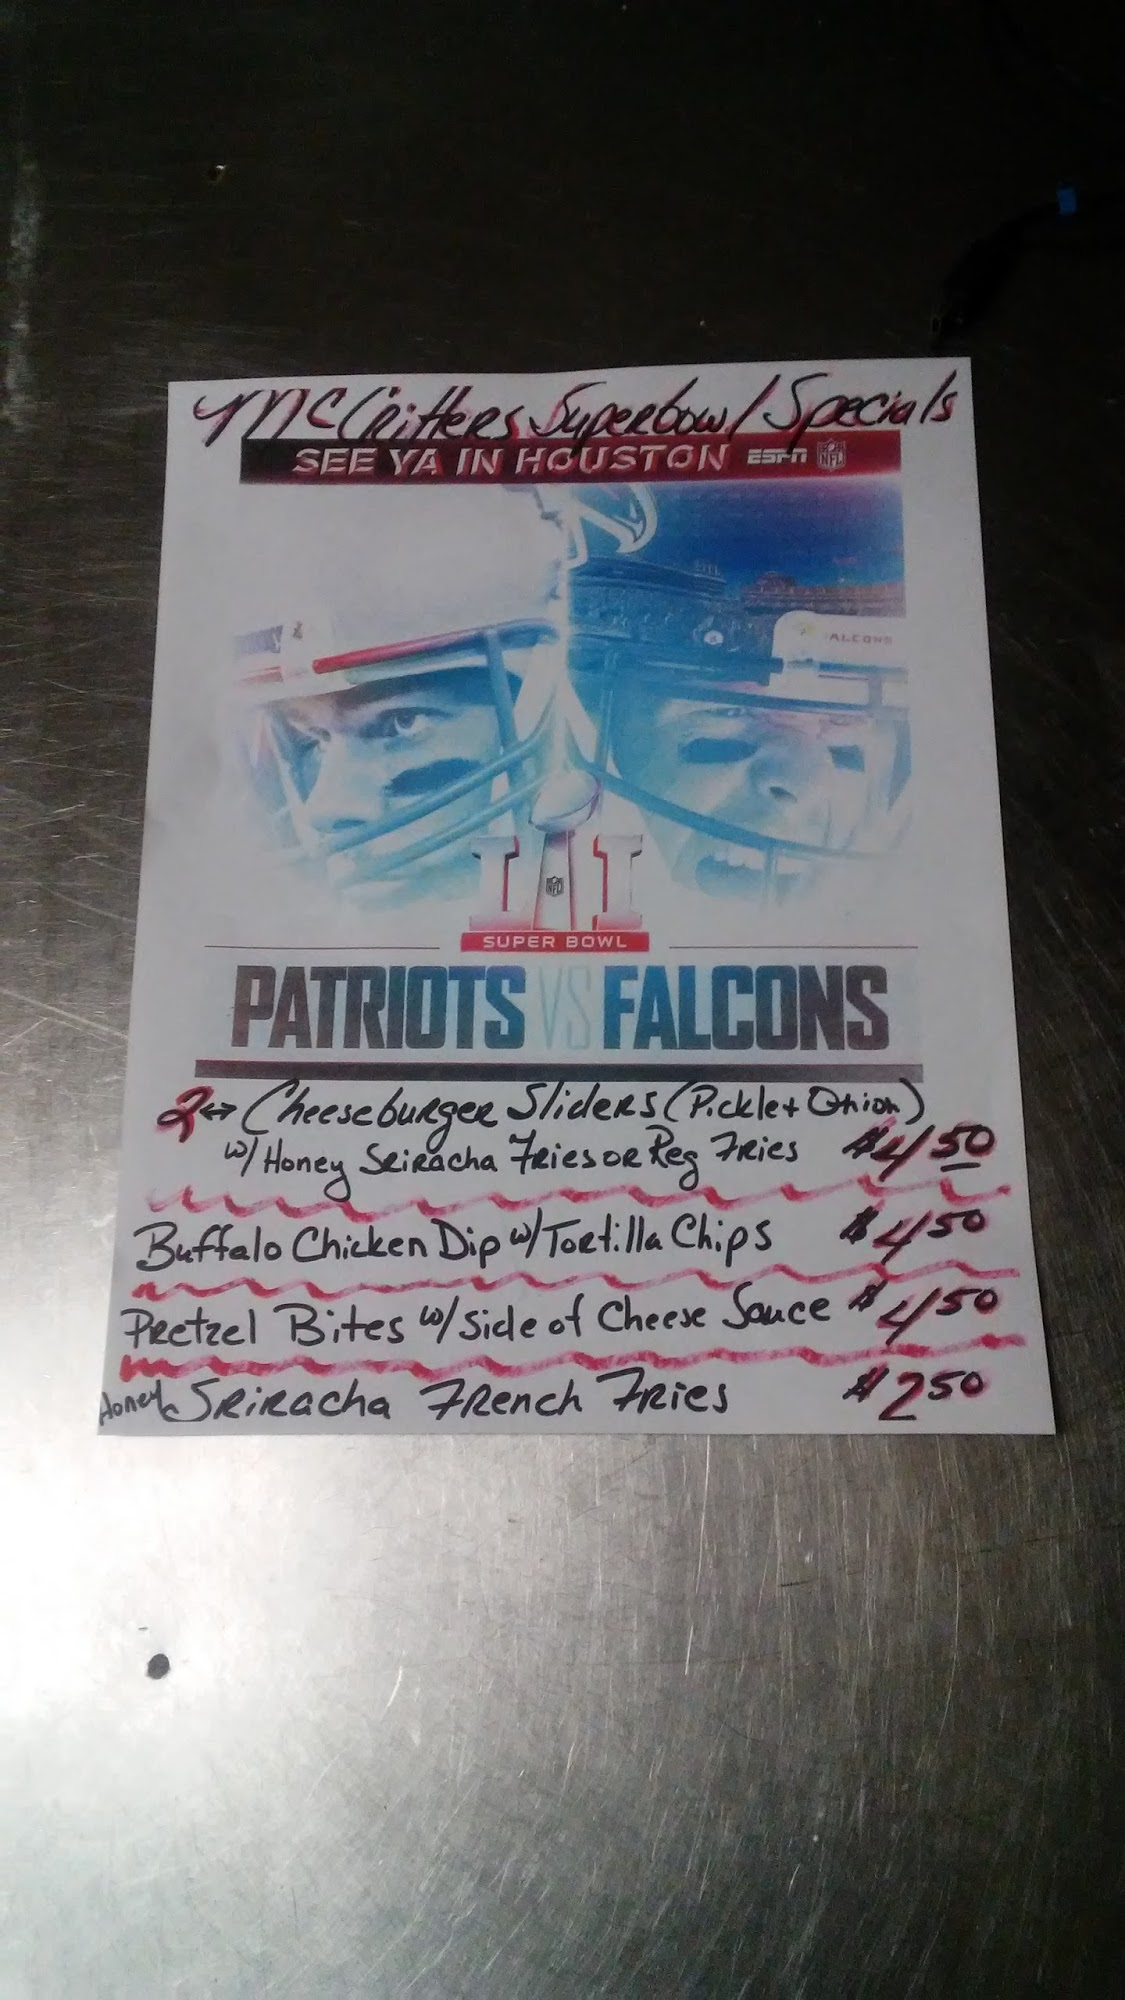 McCritters Superbowl Specials
SEE YA IN HOUSTON ESPN NFL
FALCONS
LI
NFL
SUPER BOWL
PATRIOTS VS FALCONS
2 ↔ Cheeseburger Sliders (Pickle + Onion)
w/ Honey Sriracha Fries or Reg Fries $4.50
Buffalo Chicken Dip w/ Tortilla Chips $4.50
Pretzel Bites w/ Side of Cheese Sauce $4.50
Honey Sriracha French Fries $2.50